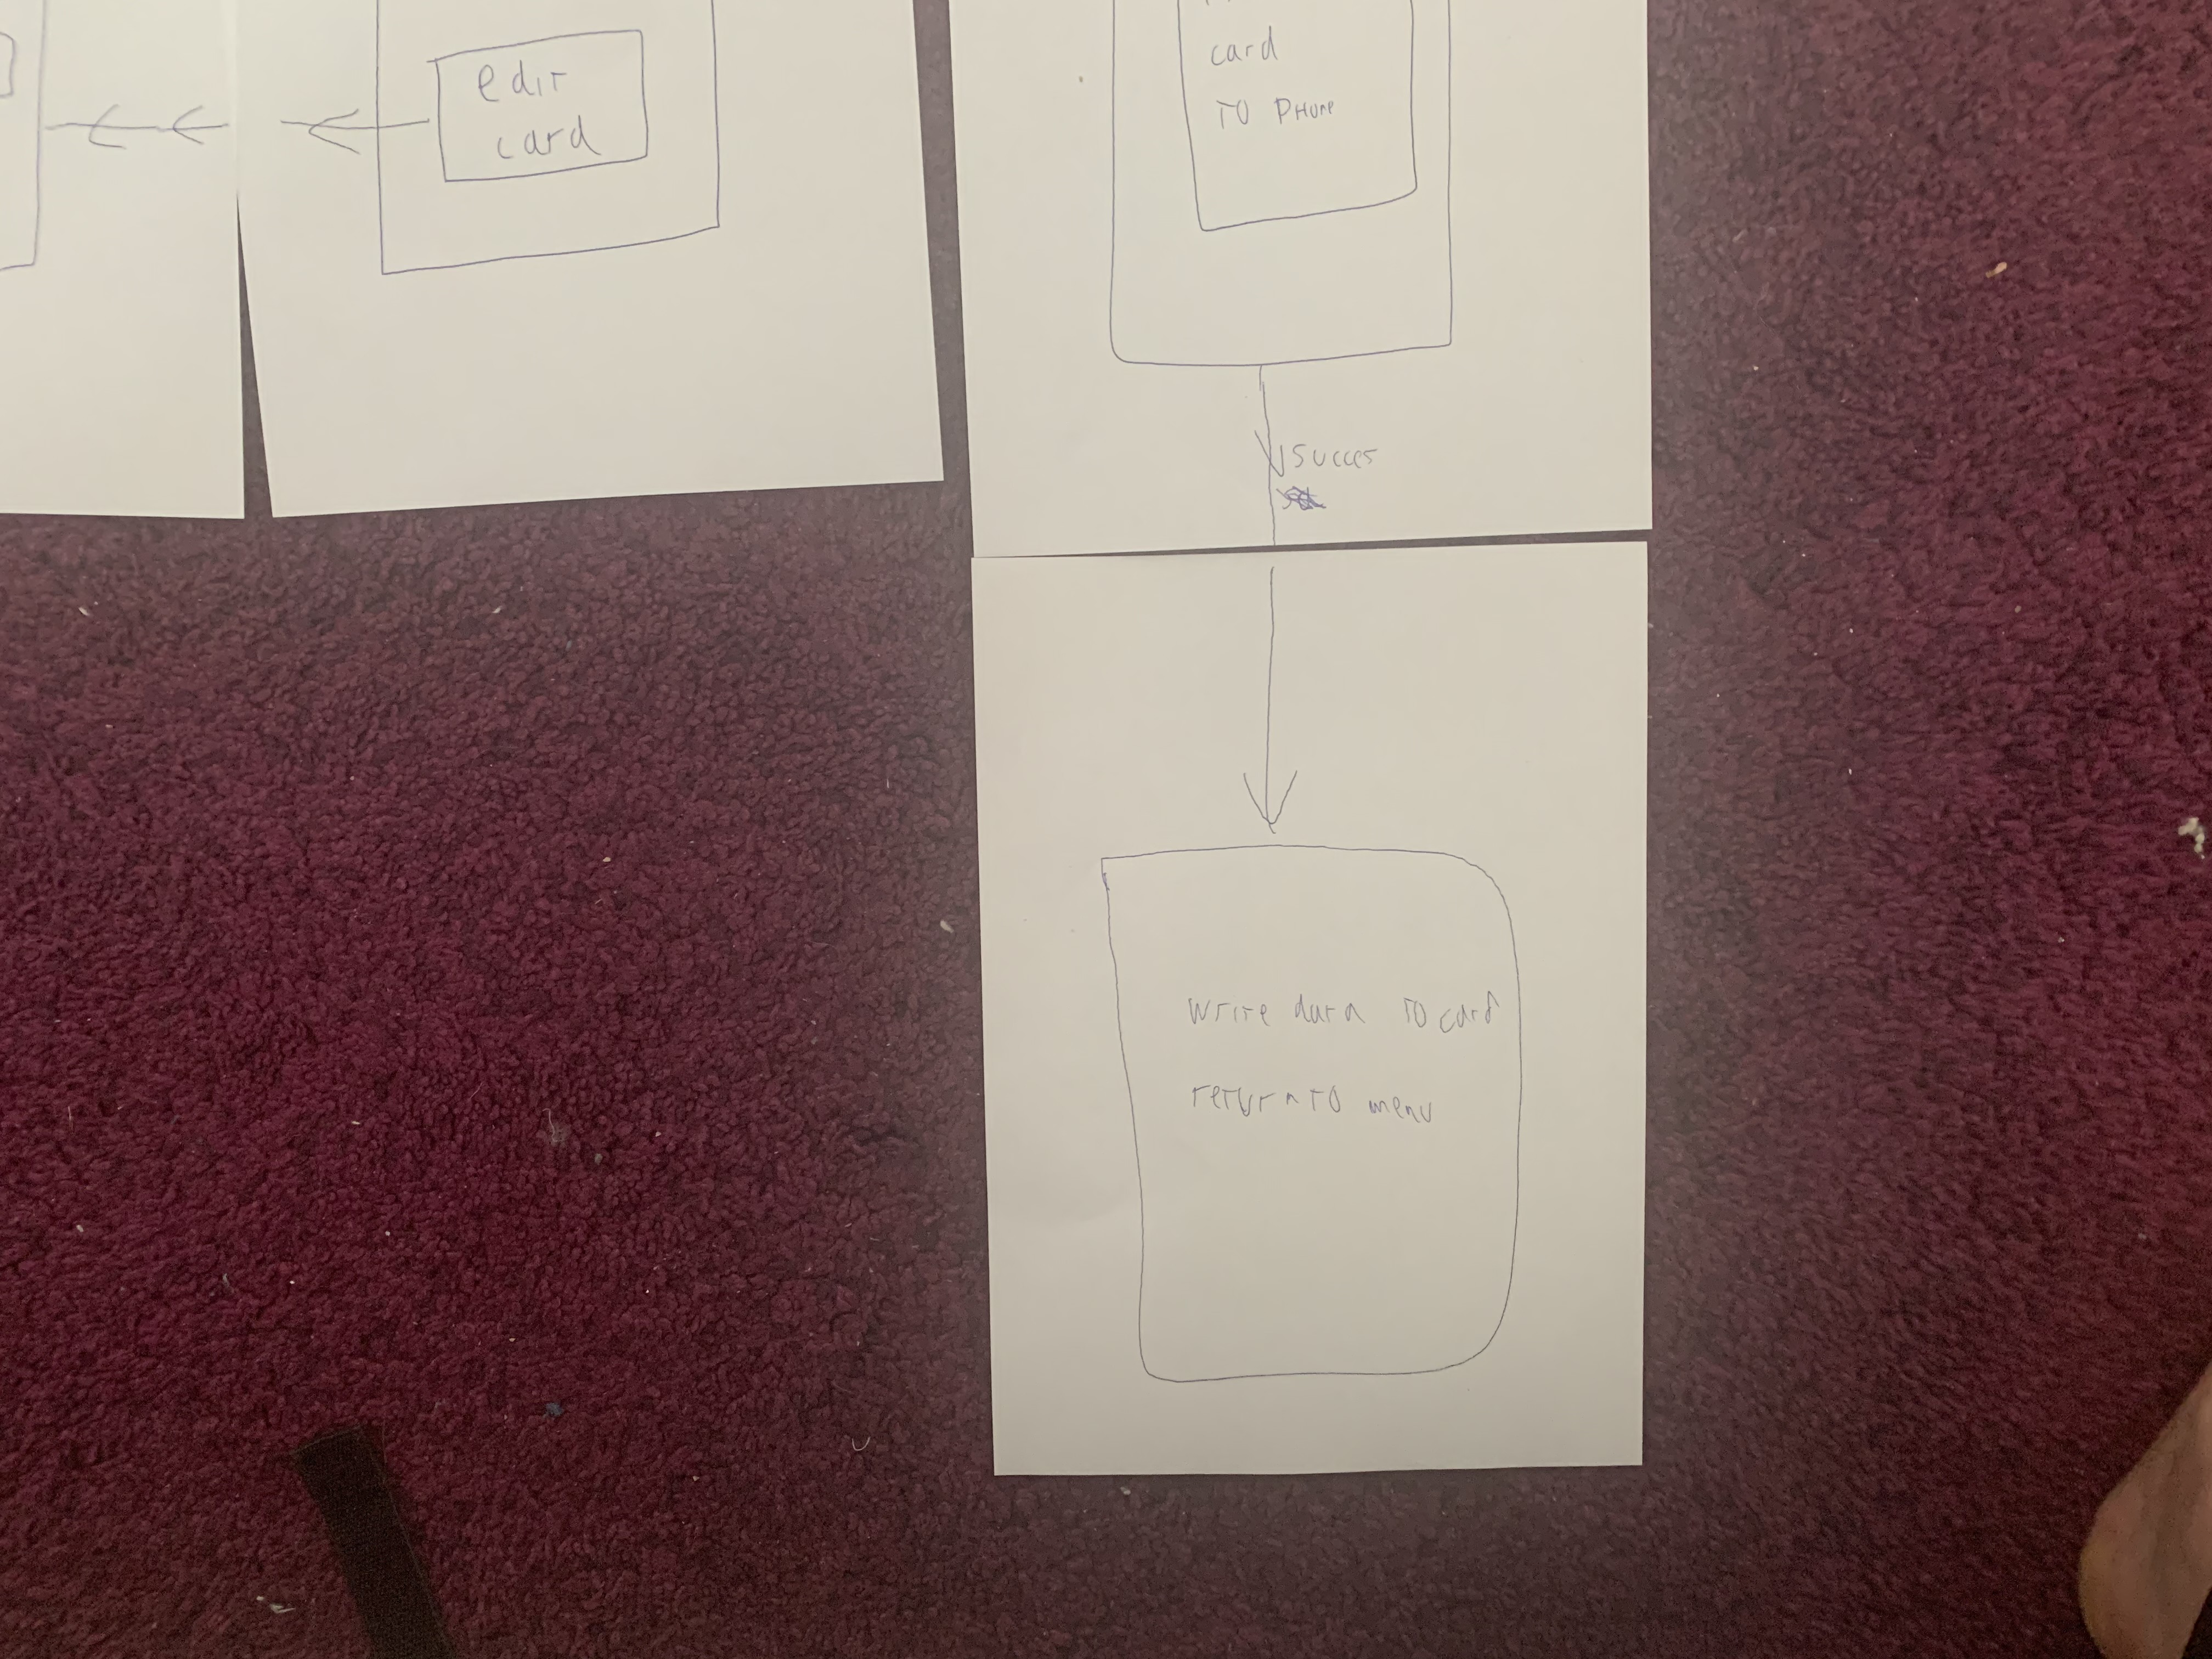 edit
card
card
TO PHone
succes
write data TO card
return TO menu